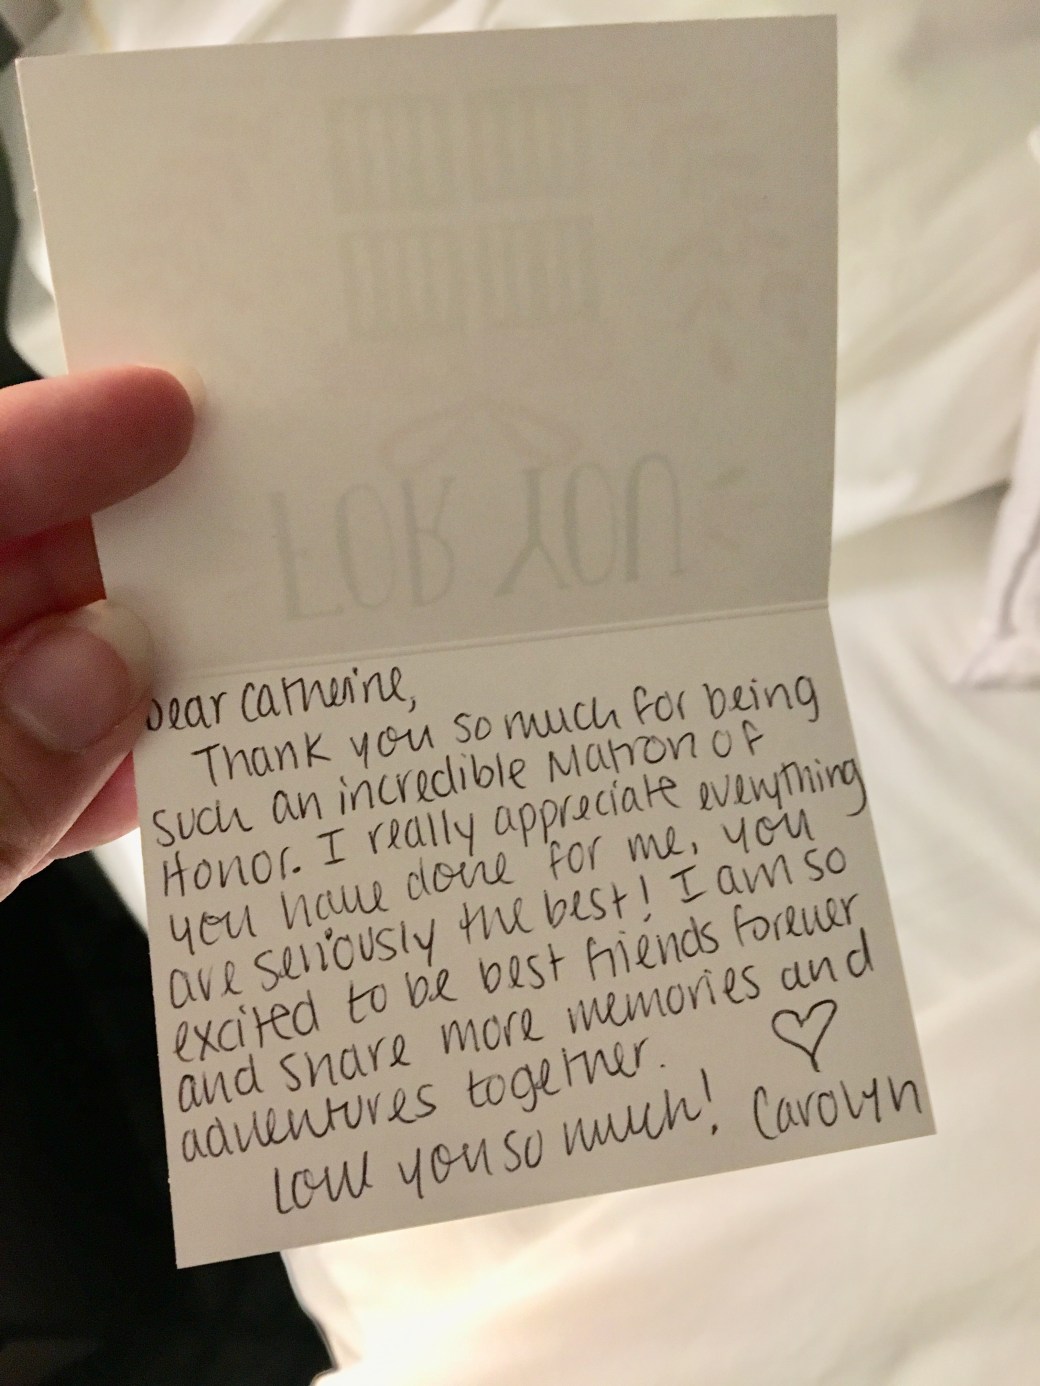 FOR YOU
Dear Catherine,
Thank you so much for being
such an incredible Matron of
Honor. I really appreciate everything
you have done for me, you
are seriously the best! I am so
excited to be best friends forever
and share more memories and
adventures together.
Love you so much! Carolyn